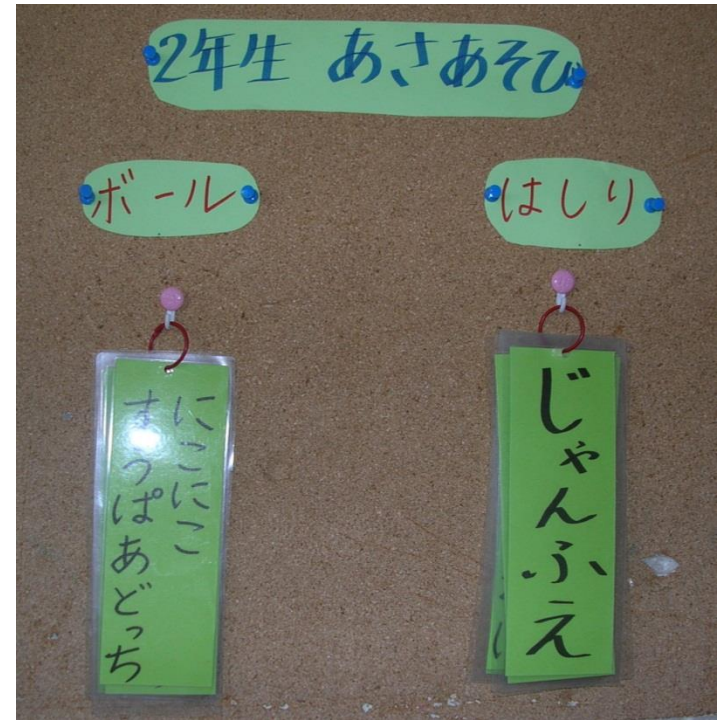 2年生 あさあそび
ボール
はしり
にこにこ
すうぱあどっち
じゃんふえ